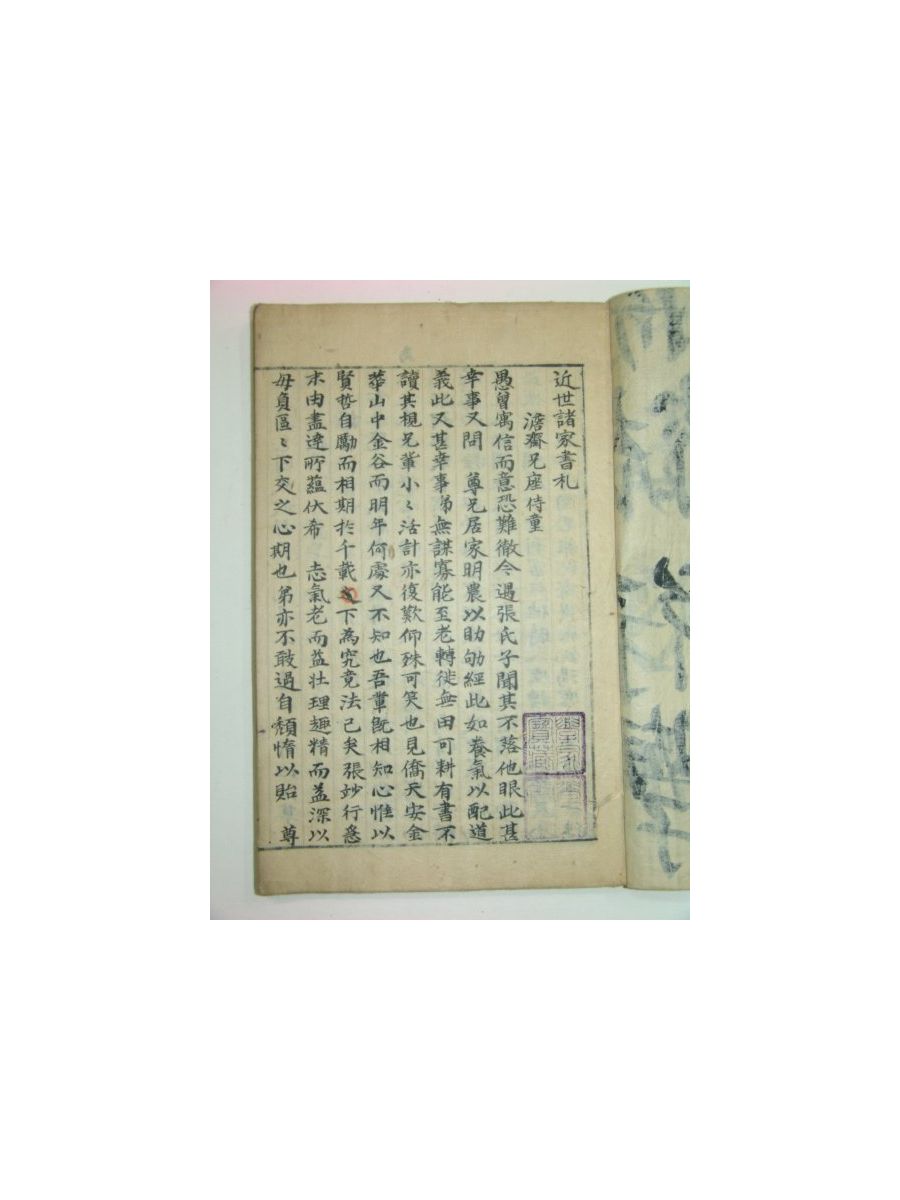 近世諸家書札
澹齋兄座侍童
愚曾寓信而意恐難徹今過張氏子聞其不落他眼此甚
幸事又問 尊兄居家明農以助劬經此如養氣以配道
義此又甚幸事弟無謀寡能至老轉徙無田可耕有書不
讀其視兄輩小〻活計亦復歎仰殊可笑也見僑天安金
華山中金谷而明年何處又不知也吾輩旣相知心惟以
賢哲自勵而相期於千載之下為究竟法已矣張竗行忩
末由盡達所蘊伏希 志氣老而益壯理趣精而益深以
毋負區〻下交之心期也弟亦不敢過自頹惰以貽 尊